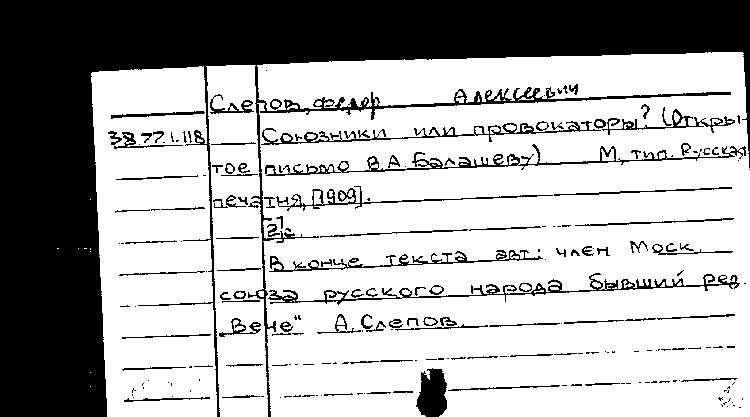 Слепов, Федор Алексеевич
38.77.1.118 Союзники или провокаторы? (Откры-
тое письмо В.А. Балашеву) М, тип. Русская
печатня, [1909].
[2]с.
В конце текста авт: член Моск.
союза русского народа бывший ред.
„Вече" А. Слепов.